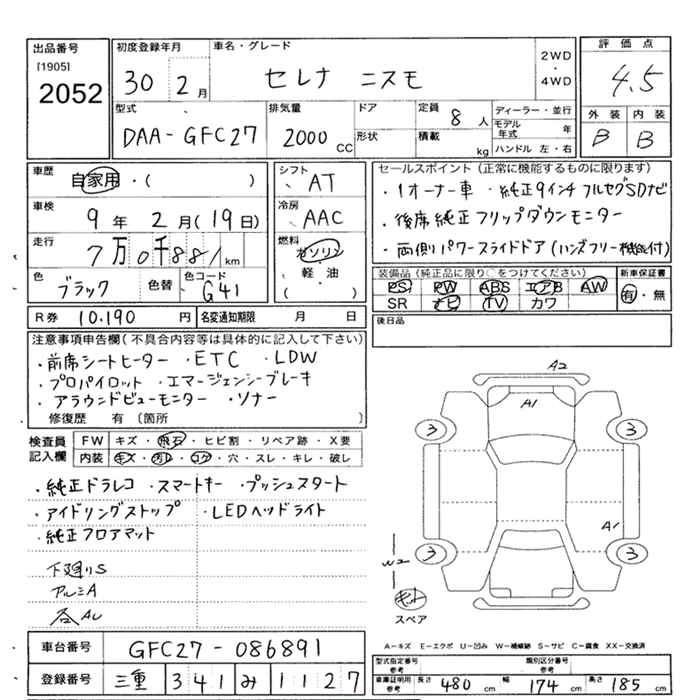 出品番号
[1905]
2052
初度登録年月
30 2月
車名・グレード
セレナ ニスモ
2WD
・
4WD
評価点
4.5
外装 内装
B B
型式
DAA-GFC27
排気量
2000 CC
ドア
形状
定員
8 人
積載
kg
ディーラー・並行
モデル年式 年
ハンドル 左・右
車歴
自家用・( )
シフト
AT
車検
9年 2月(19日)
冷房
AAC
走行
7万0千881km
燃料
ガソリン
軽・油
( )
色
ブラック
色替
色コード
G41
R券 10,190 円
名変通知期限 月 日
セールスポイント(正常に機能するものに限ります)
・1オーナー車 ・純正9インチフルセグSDナビ
・後席純正フリップダウンモニター
・両側パワースライドドア(ハンズフリー機能付)
装備品(純正品に限り○をつけてください)
PS PW ABS エアB AW
SR ナビ TV カワ
新車保証書
有・無
後日品
注意事項申告欄(不具合内容等は具体的に記入して下さい)
・前席シートヒーター ・ETC ・LDW
・プロパイロット ・エマージェンシーブレーキ
・アラウンドビューモニター ・ソナー
修復歴 有 (箇所 )
検査員記入欄
FW キズ・飛石・ヒビ割・リペア跡・X要
内装 キズ・汚れ・コゲ・穴・スレ・キレ・破レ
・純正ドラレコ ・スマートキー ・プッシュスタート
・アイドリングストップ ・LEDヘッドライト
・純正フロアマット
下廻りS
アルミA
各AU
A2
A1
3 3
A1
3 3
W2
キット
スペア
A-キズ E-エクボ U-凹み W-補修跡 S-サビ C-腐食 XX-交換済
車台番号
GFC27-086891
登録番号
三重 341 み 1127
型式指定番号
参考
類別区分番号
参考
車庫証明用
参考
長さ 480 cm
幅 174 cm
高さ 185 cm